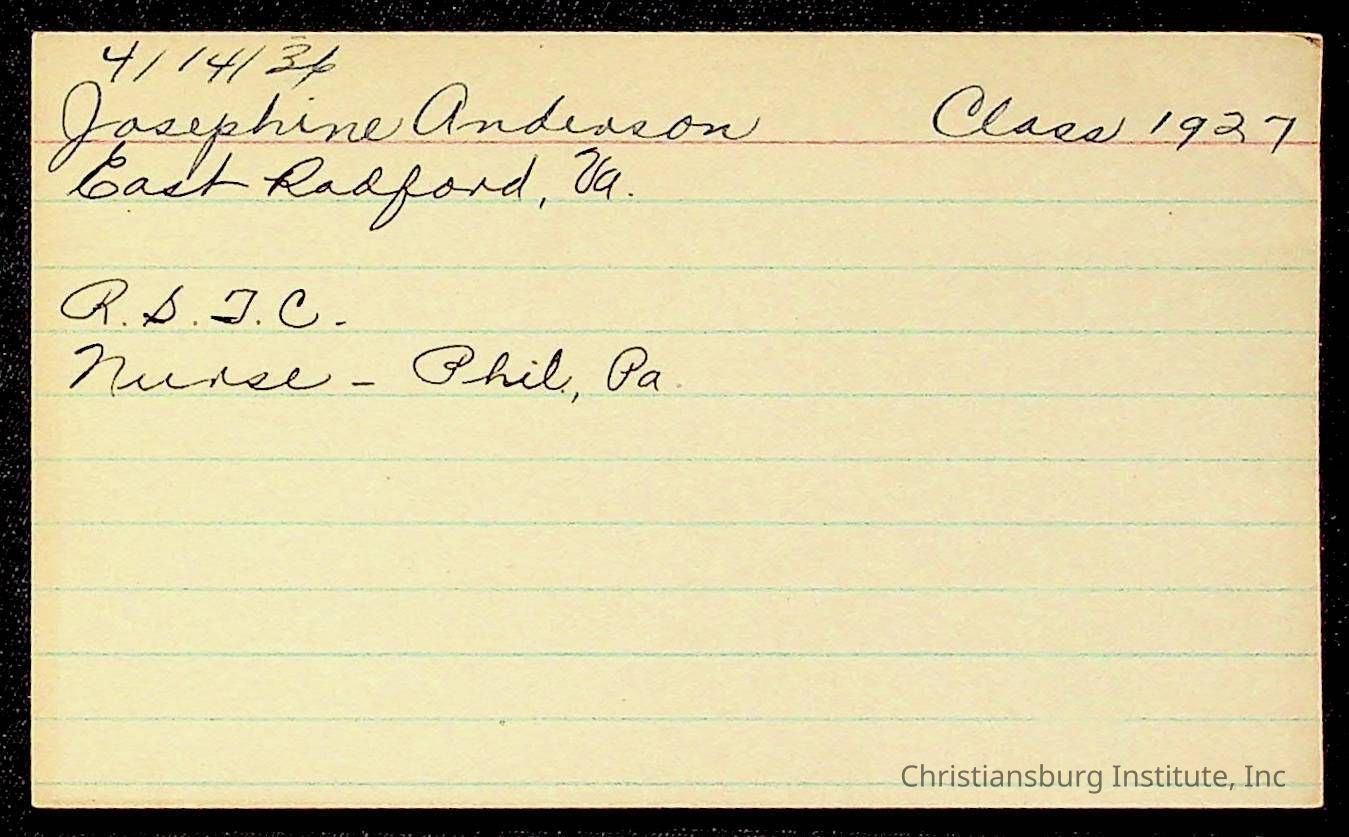 4/14/36
Josephine Anderson Class 1927
East Radford, Va.
R. S. T. C.
Nurse - Phil., Pa.
Christiansburg Institute, Inc